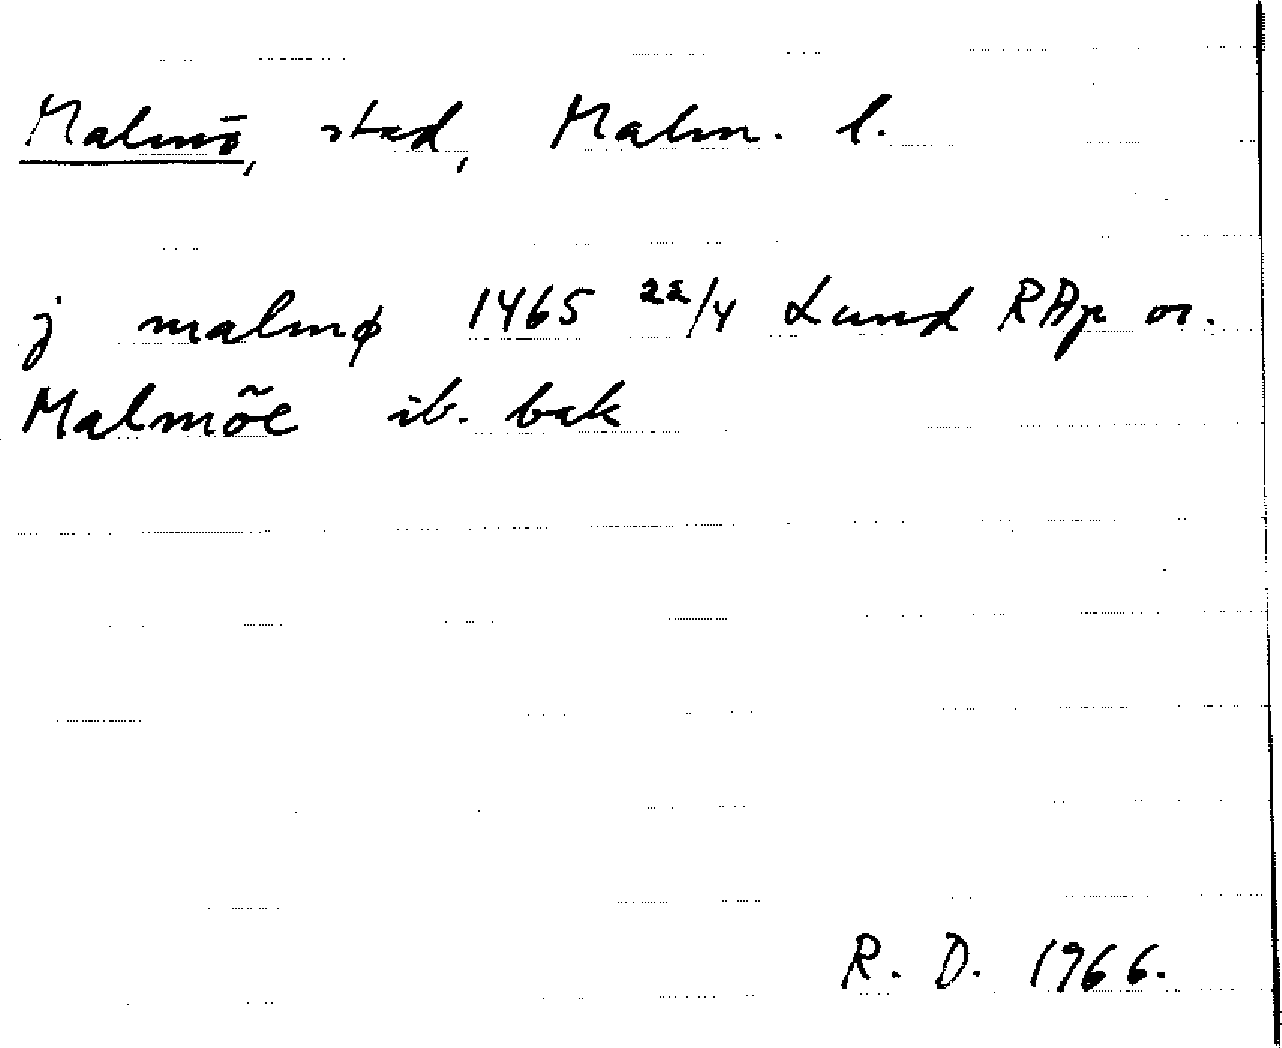 Malmö, stad, Malm. l.
j malmø 1465 22/4 Lund RAp or.
Malmõe ib. bak
R. D. 1966.